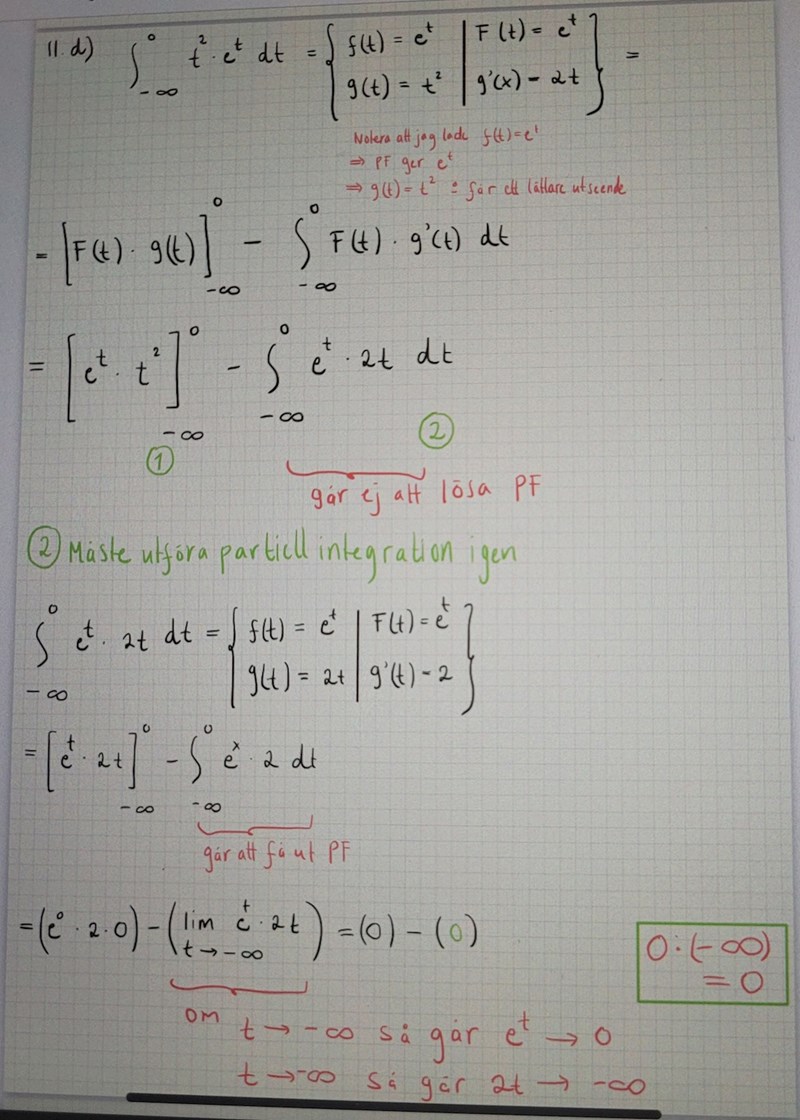 11. d) ∫_{-∞}^{0} t² · e^t dt = { f(t) = e^t | F(t) = e^t
g(t) = t² | g'(x) - 2t } =
Notera att jag lade f(t) = e^t
⇒ PF ger e^t
⇒ g(t) = t² = får ett lättare utseende
= [F(t) · g(t)]_{-∞}^{0} - ∫_{-∞}^{0} F(t) · g'(t) dt
= [e^t · t²]_{-∞}^{0} - ∫_{-∞}^{0} e^t · 2t dt
① ②
går ej att lösa PF
② Måste utföra partiell integration igen
∫_{-∞}^{0} e^t · 2t dt = { f(t) = e^t | F(t) = e^t
g(t) = 2t | g'(t) - 2 }
= [e^t · 2t]_{-∞}^{0} - ∫_{-∞}^{0} e^x · 2 dt
går att få ut PF
= (e^0 · 2 · 0) - (lim_{t → -∞} e^t · 2t) = (0) - (0)
0 · (-∞)
= 0
om t → -∞ så går e^t → 0
t → -∞ så går 2t → -∞